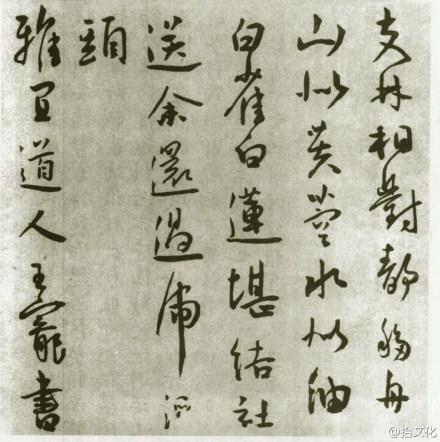 支林相對靜移舟
山似芙蓉水似油
白雀白蓮堪結社
送余還過虎溪
頭
雅宜道人王寵書
@拾文化